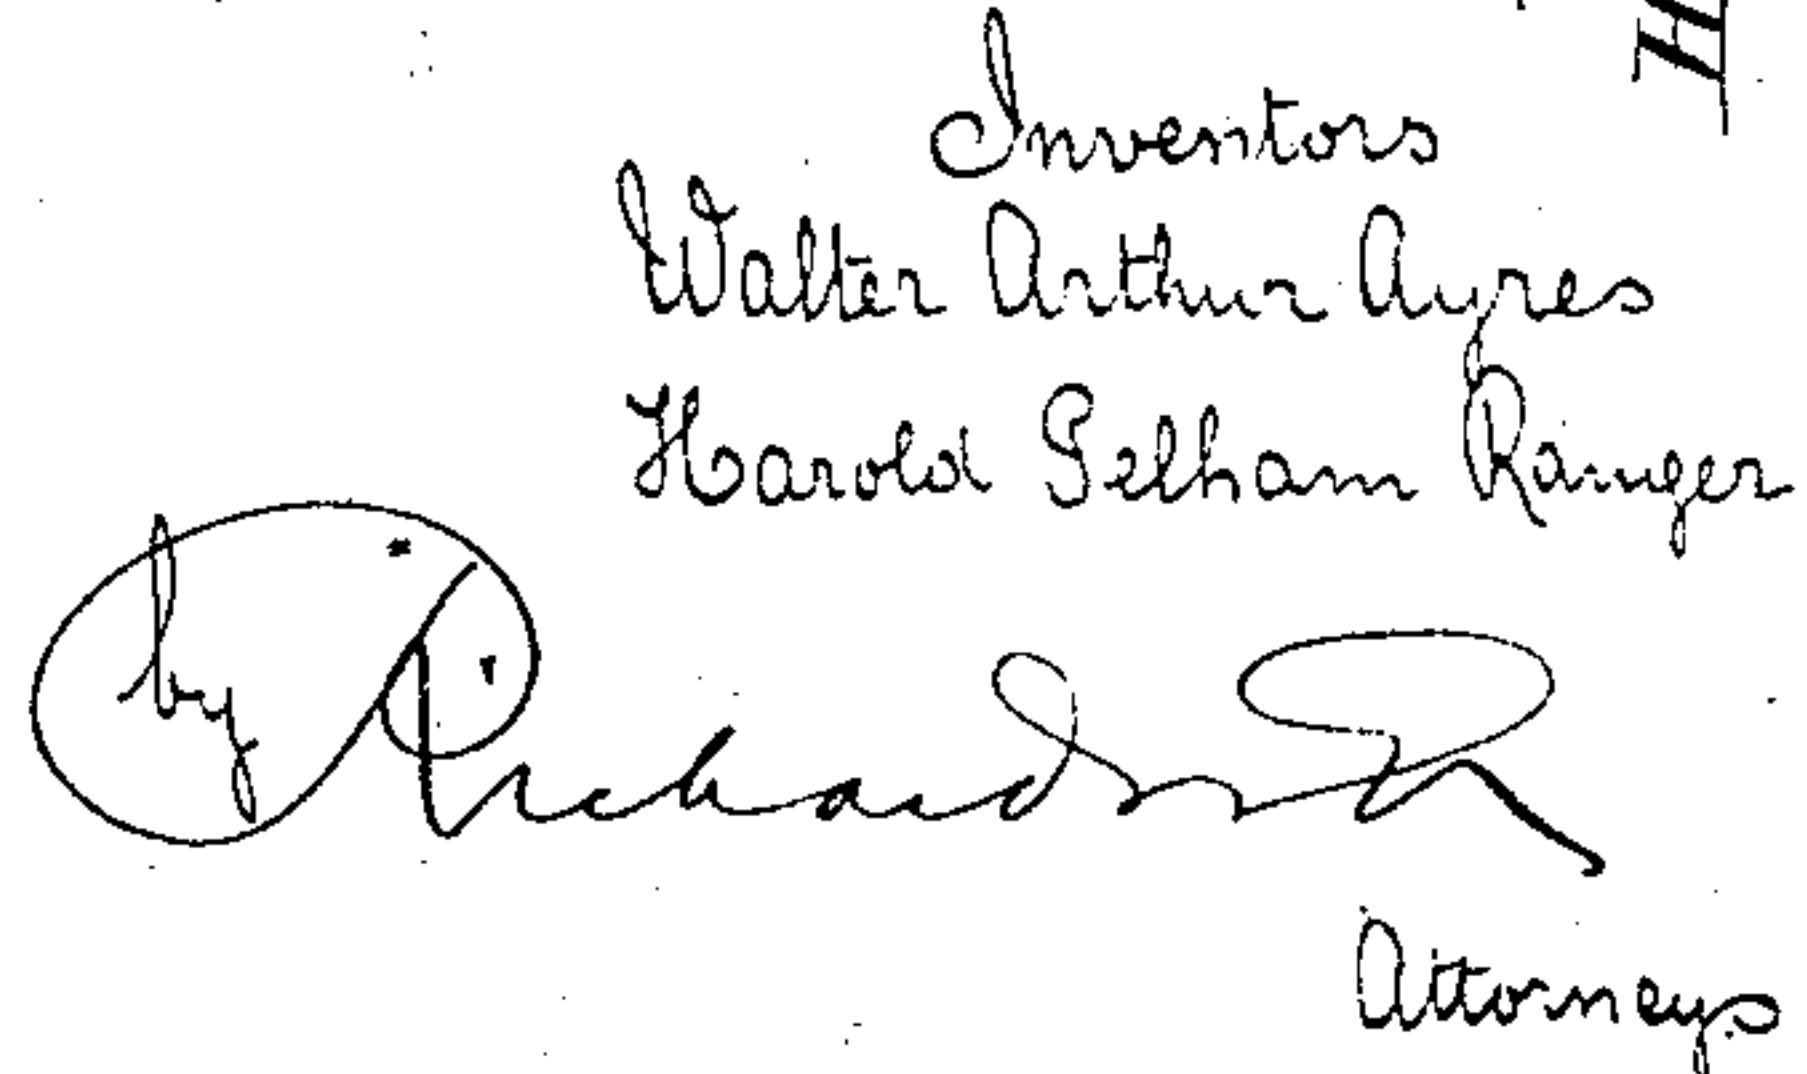 Inventors
Walter Arthur Ayres
Harold Pelham Ranger
by Richards
Attorneys